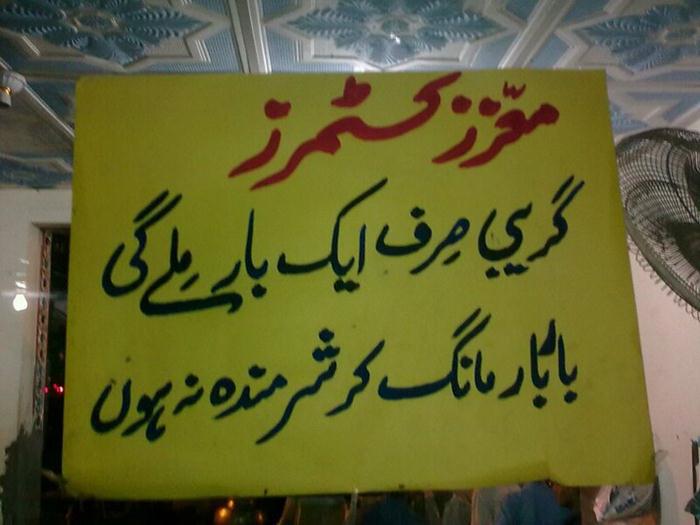 معزز کسٹمرز
گریبی صرف ایک بار ملے گی
بار بار مانگ کر شرمندہ نہ ہوں